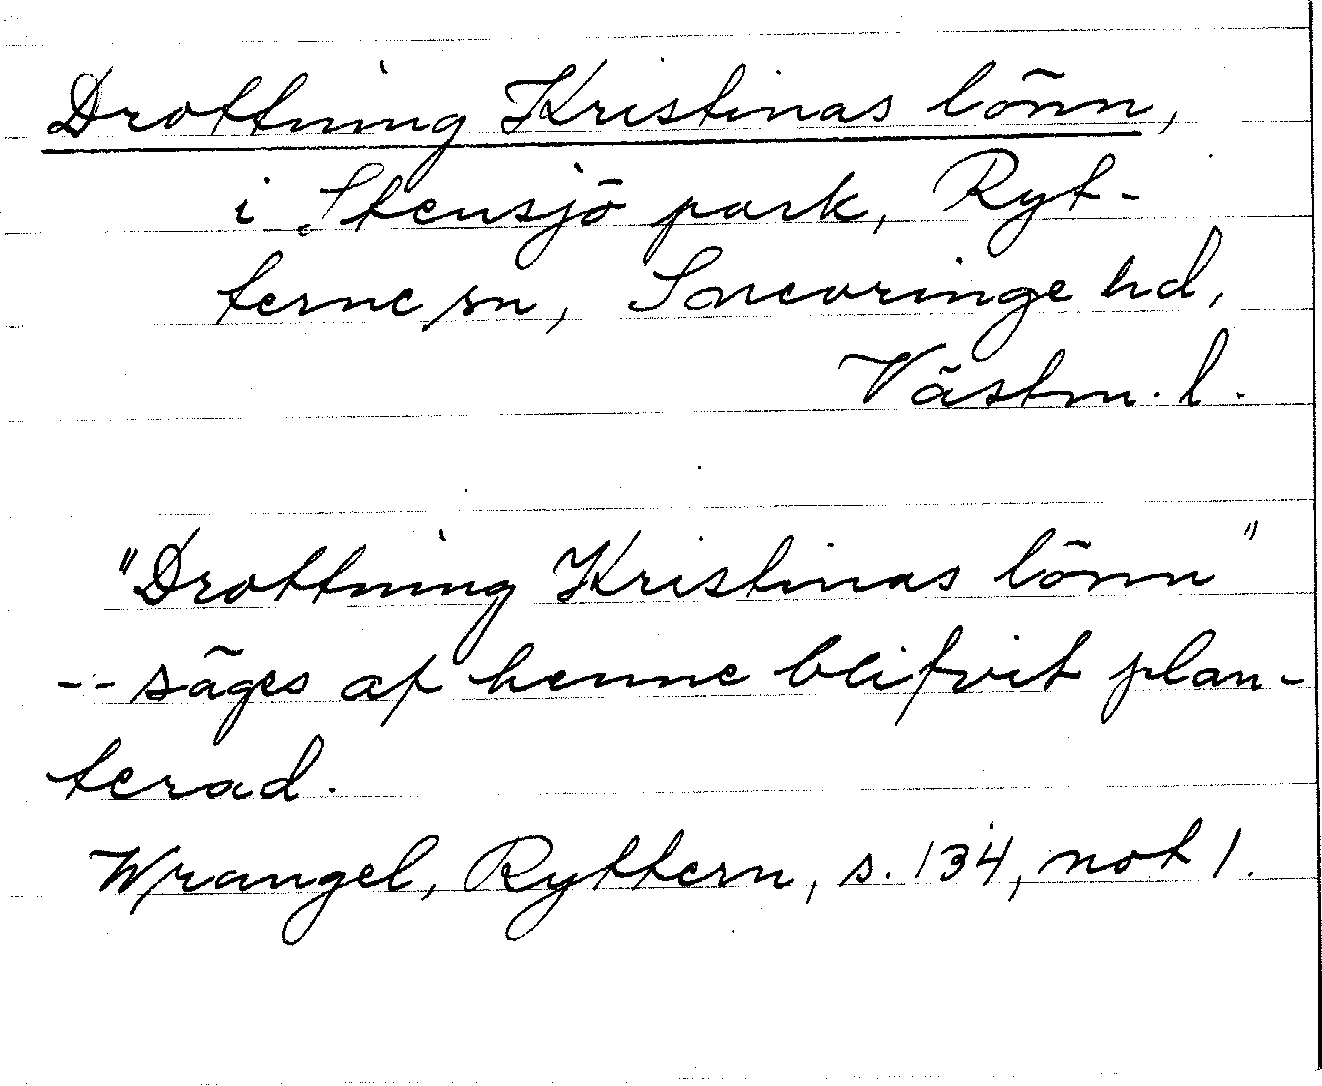 Drottning Kristinas lönn,
i Stensjö park, Ryt-
terne sn, Snevringe hd,
Västm. l.
"Drottning Kristinas lönn"
-- säges af henne blifvit plan-
terad.
Wrangel, Ryttern, s. 134, not 1.